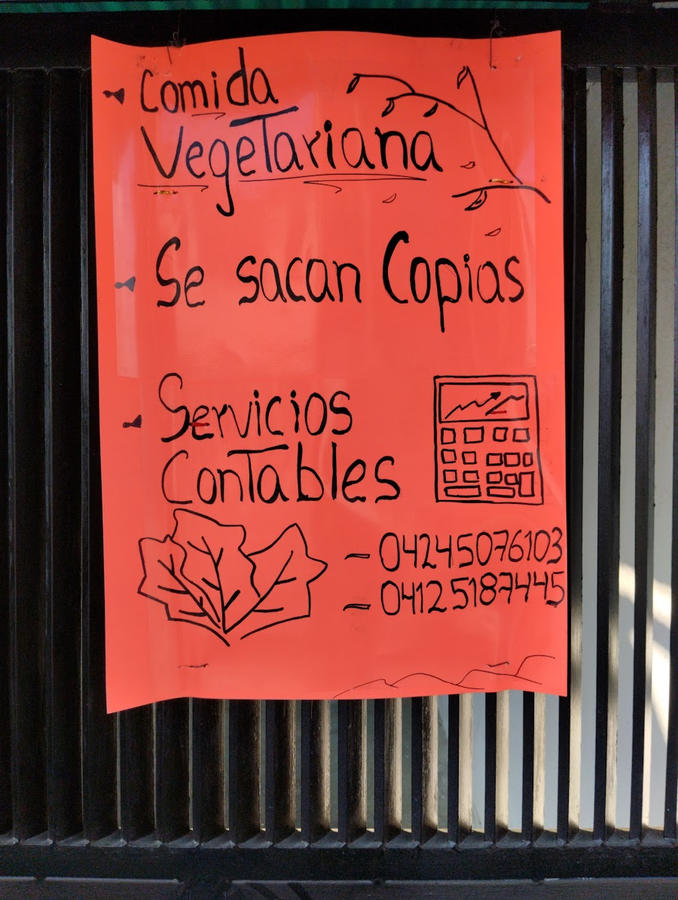 Comida
Vegetariana
Se sacan Copias
Servicios
Contables
- 04245076103
- 04125187445